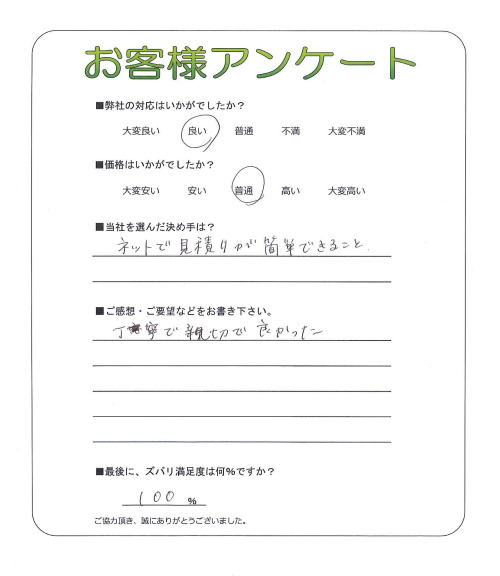 お客様アンケート
■弊社の対応はいかがでしたか？
大変良い 良い 普通 不満 大変不満
■価格はいかがでしたか？
大変安い 安い 普通 高い 大変高い
■当社を選んだ決め手は？
ネットで見積りが簡単できること.
■ご感想・ご要望などをお書き下さい。
丁寧で親切で良かった
■最後に、ズバリ満足度は何%ですか？
100 %
ご協力頂き、誠にありがとうございました。